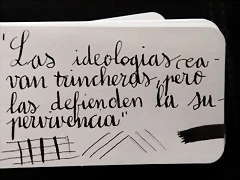 "Las ideologías cea-
van trincheras, pero
las defienden la su-
pervivencia"